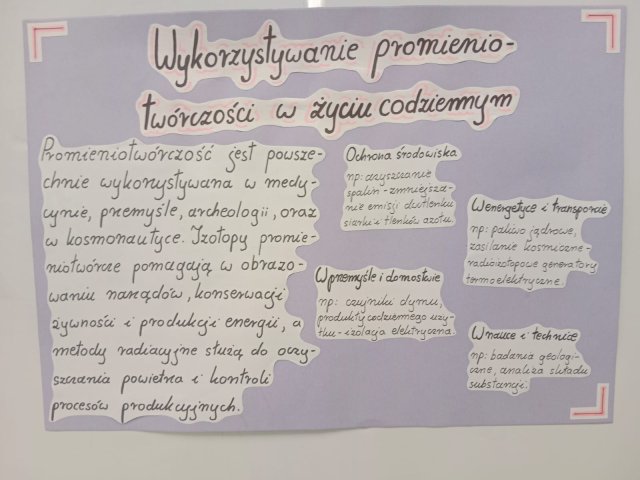 Wykorzystywanie promienio-
twórczości w życiu codziennym
Promieniotwórczość jest powsze-
chnie wykorzystywana w medy-
cynie, przemyśle, archeologii, oraz
w kosmonautyce. Izotopy promie-
niotwórcze pomagają w obrazo-
waniu narządów, konserwacji
żywności i produkcji energii, a
metody radiacyjne służą do oczy-
szczania powietrza i kontroli
procesów produkcyjnych.
Ochrona środowiska
np: oczyszczanie
spalin - zmniejsza-
nie emisji dwutlenku
siarki i tlenków azotu.
W przemyśle i domostwie
np: czujniki dymu,
produkty codziennego uży-
tku - izolacja elektryczna.
W energetyce i transporcie
np: paliwo jądrowe,
zasilanie kosmiczne -
radioizotopowe generatory
termoelektryczne.
W nauce i technice
np: badania geologi-
czne, analiza składu
substancji.